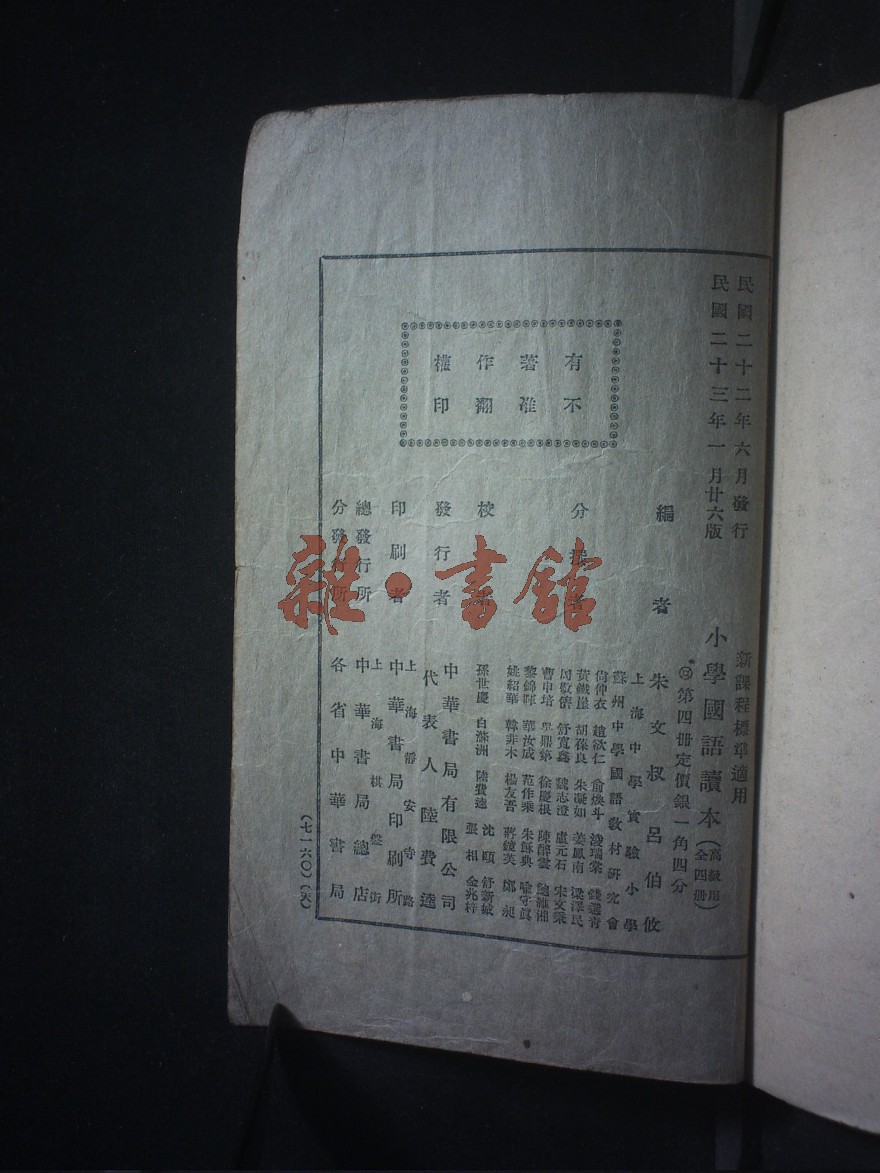 民國二十二年六月發行
民國二十三年一月廿六版
新課程標準適用
小學國語讀本(高級用 全四冊)
第四冊定價銀一角四分
編者
朱文叔 呂伯攸
上海中學實驗小學
蘇州中學國語教材研究會
分撰者
尙仲衣 趙欲仁 俞煥斗
黃鐵崖 胡葆良 朱凝如 姜鳳南 梁澤民
舒寬鑫 魏志澄 盧元石 宋文
曹中培 徐慶根 陳醉雲 鮑維湘
黎錦暉 華汝成 范作乘 朱穌典 喻守眞
姚紹華 韓非木 楊友吾 蔣鏡芙 鄭昶
校者
沈頤 舒新城
孫世慶 白滌洲 陸費逵
張相 金兆梓
發行者
中華書局有限公司
代表人陸費逵
印刷者
上海靜安寺路
中華書局印刷所
總發行所
上海棋盤街
中華書局總店
分發行所
各省中華書局
(七一六〇)(大)
有著作權
不准翻印
雜·書館